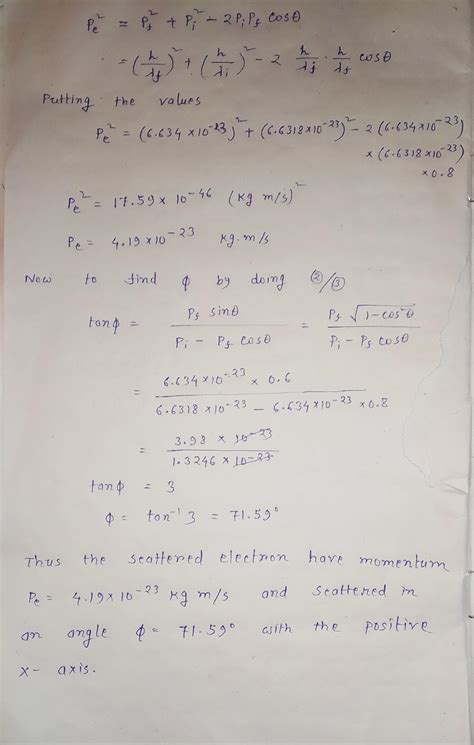 Pe² = Pf² + Pi² - 2PiPf cosθ
= (h/λf)² + (h/λi)² - 2 h/λf · h/λf cosθ
Putting the values
Pe² = (6.634 × 10⁻²³)² + (6.6318 × 10⁻²³)² - 2 (6.634 × 10⁻²³)
× (6.6318 × 10⁻²³)
× 0.8
Pe² = 17.59 × 10⁻⁴⁶ (kg m/s)²
Pe = 4.19 × 10⁻²³ kg.m/s
Now to find ϕ by doing ②/③
tanϕ = Pf sinθ / (Pi - Pf cosθ) = Pf √(1-cos²θ) / (Pi - Pf cosθ)
= 6.634 × 10⁻²³ × 0.6 / (6.6318 × 10⁻²³ - 6.634 × 10⁻²³ × 0.8)
= 3.98 × 10⁻²³ / 1.3246 × 10⁻²³
tanϕ = 3
ϕ = tan⁻¹ 3 = 71.59°
Thus the scattered electron have momentum
Pe = 4.19 × 10⁻²³ kg m/s and scattered in
an angle ϕ = 71.59° with the positive
x- axis.